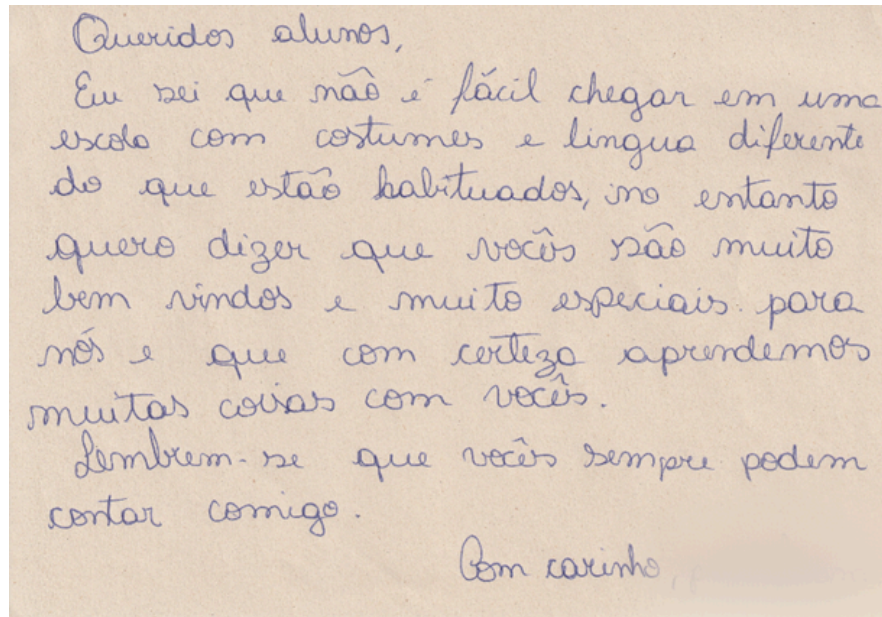 Queridos alunos,
Eu sei que não é fácil chegar em uma
escola com costumes e lingua diferente
do que estão habituados, no entanto
quero dizer que vocês são muito
bem vindos e muito especiais para
nós e que com certeza aprendemos
muitas coisas com vocês.
Lembrem-se que vocês sempre podem
contar comigo.
Com carinho,